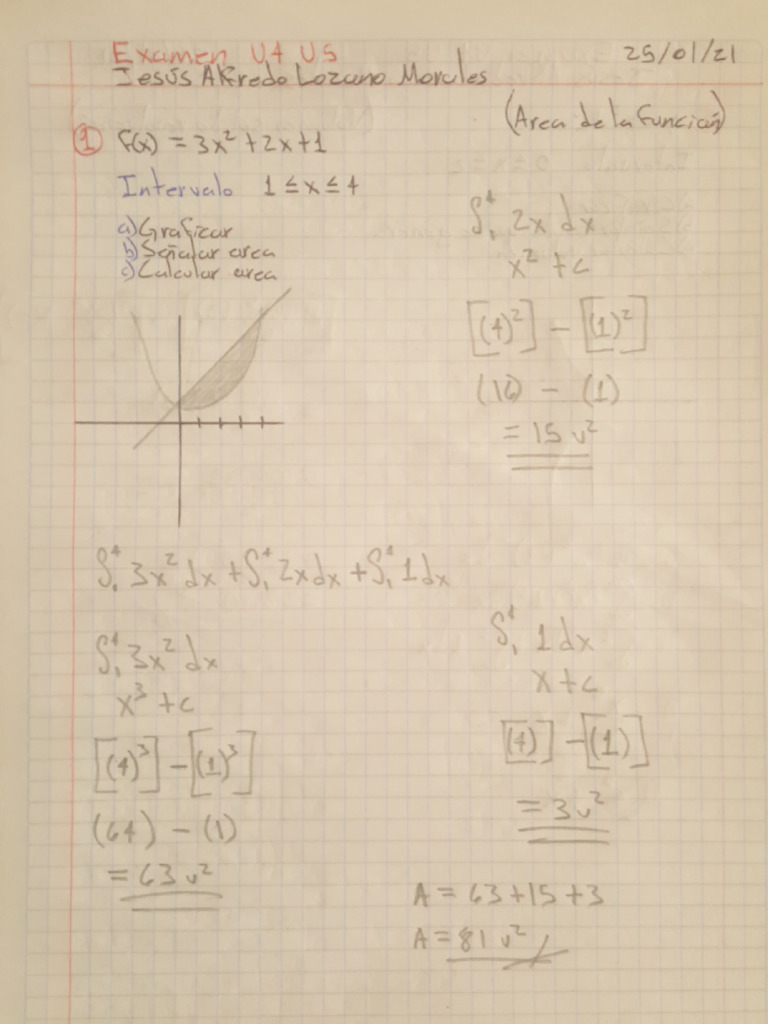 Examen U4 U5
25/01/21
Jesús Alfredo Lozano Morales
(Area de la Función)
① F(x) = 3x² + 2x + 1
Intervalo 1 ≤ x ≤ 4
a) Graficar
b) Señalar area
c) Calcular area
∫₁⁴ 2x dx
x² + c
[(4)²] - [(1)²]
(16) - (1)
= 15 u²
∫₁⁴ 3x² dx + ∫₁⁴ 2x dx + ∫₁⁴ 1 dx
∫₁⁴ 3x² dx
x³ + c
[(4)³] - [(1)³]
(64) - (1)
= 63 u²
∫₁⁴ 1 dx
x + c
[(4)] - [(1)]
= 3 u²
A = 63 + 15 + 3
A = 81 u²